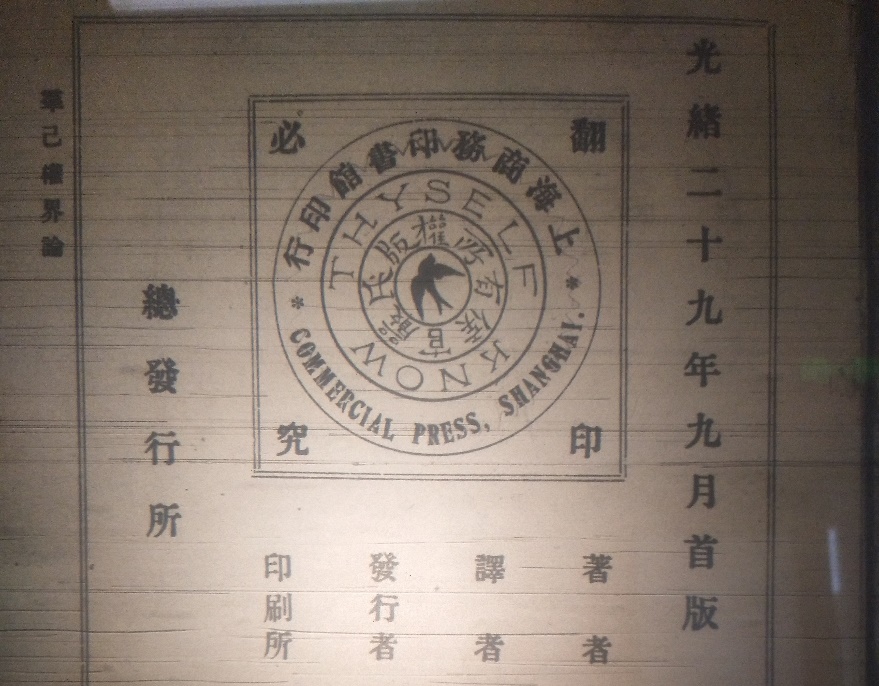 光緒二十九年九月首版
翻印
必究
上海商務印書館印行
COMMERCIAL PRESS, SHANGHAI.
KNOW THYSELF
侯官嚴氏版權所有
著者
譯者
發行者
印刷所
總發行所
羣己權界論